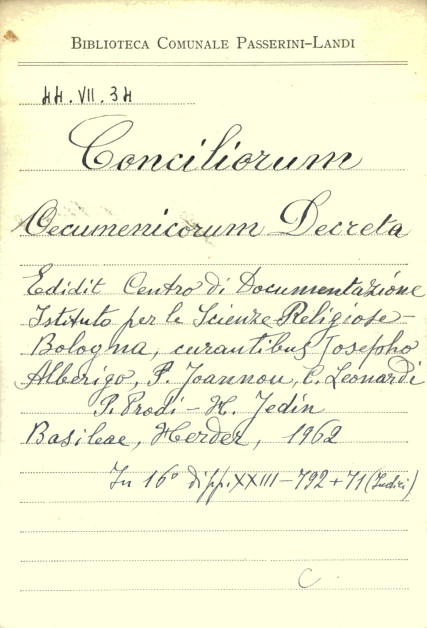 BIBLIOTECA COMUNALE PASSERINI-LANDI
44.VII.34
Conciliorum
Oecumenicorum Decreta
Edidit Centro di Documentazione
Istituto per le Scienze Religiose -
Bologna, curantibus Josepho
Alberigo, P. Joannou, C. Leonardi
P. Prodi - H. Jedin
Basileae, Herder, 1962
In 16° di pp. XXIII - 792 + 71 (Indici)
C.